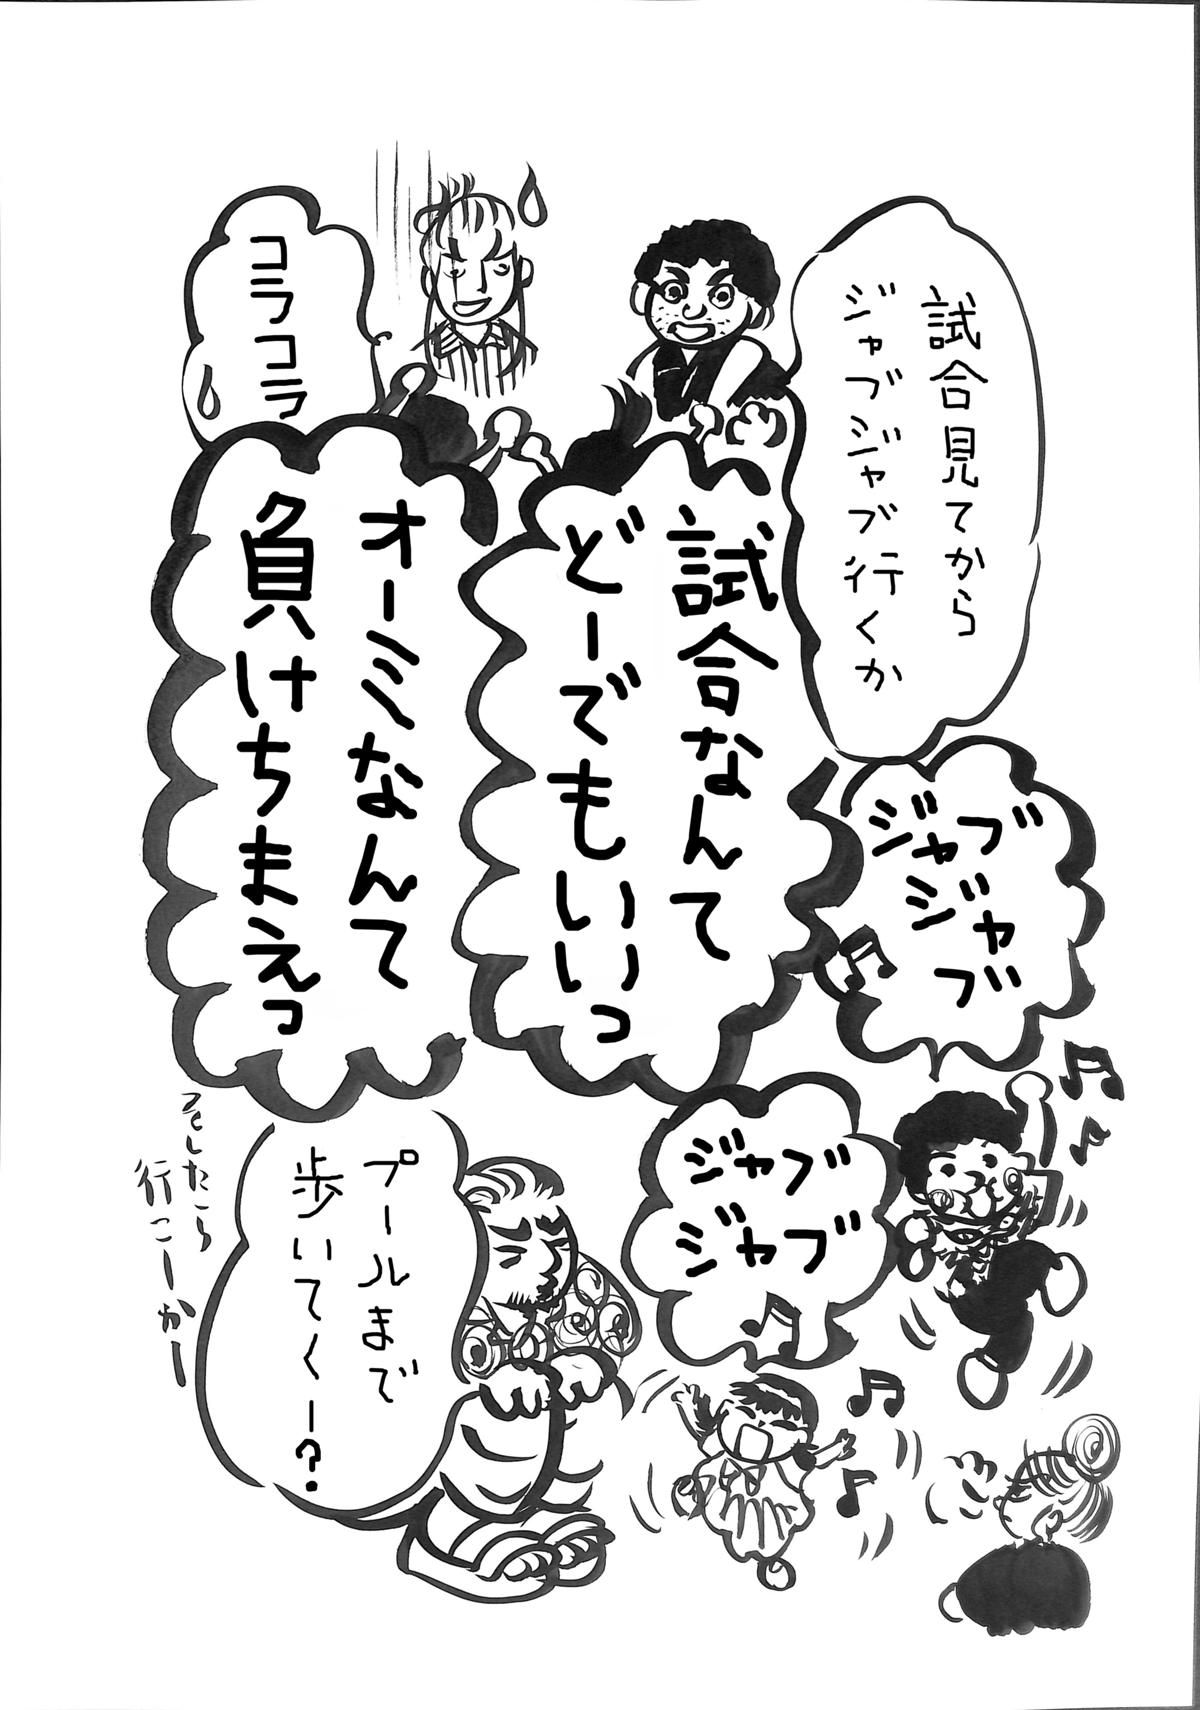 試合見てから
ジャブジャブ行くか
ジャブ
ジャブ
ジャブ
ジャブ
試合なんて
どーでもいいっ
コラコラ
オーミなんて
負けちまえっ
プールまで
歩いてくー?
そしたら
行こーかー